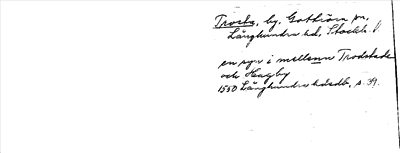 Trosby, by, Gottröra sn,
Långhundra hd, Stockh. l.
en syn i mellenn Trodstada
och Hagby
1550 Långhundra hdsdb, s. 39.